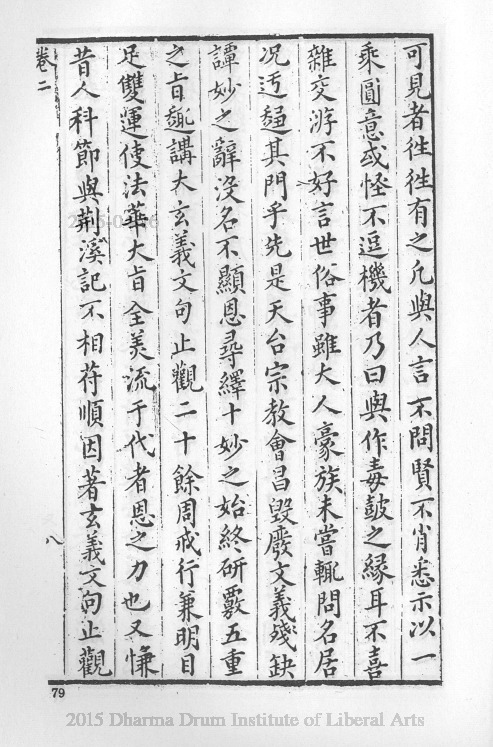 可見者徃徃有之凢與人言不問賢不肖悉示以一
乘圓意或怪不逗機者乃曰與作毒鼓之緣耳不喜
雜交游不好言世俗事雖大人豪族未嘗輒問名居
况迃趨其門乎先是天台宗教會昌毀廢文義殘缺
譚妙之辭沒名不顯恩尋繹十妙之始終研覈五重
之旨趣講大玄義文句止觀二十餘周戒行兼明目
足雙運使法華大旨全美流于代者恩之力也又慊
昔人科節與荆溪記不相符順因著玄義文句止觀
卷二
八
79
2015 Dharma Drum Institute of Liberal Arts